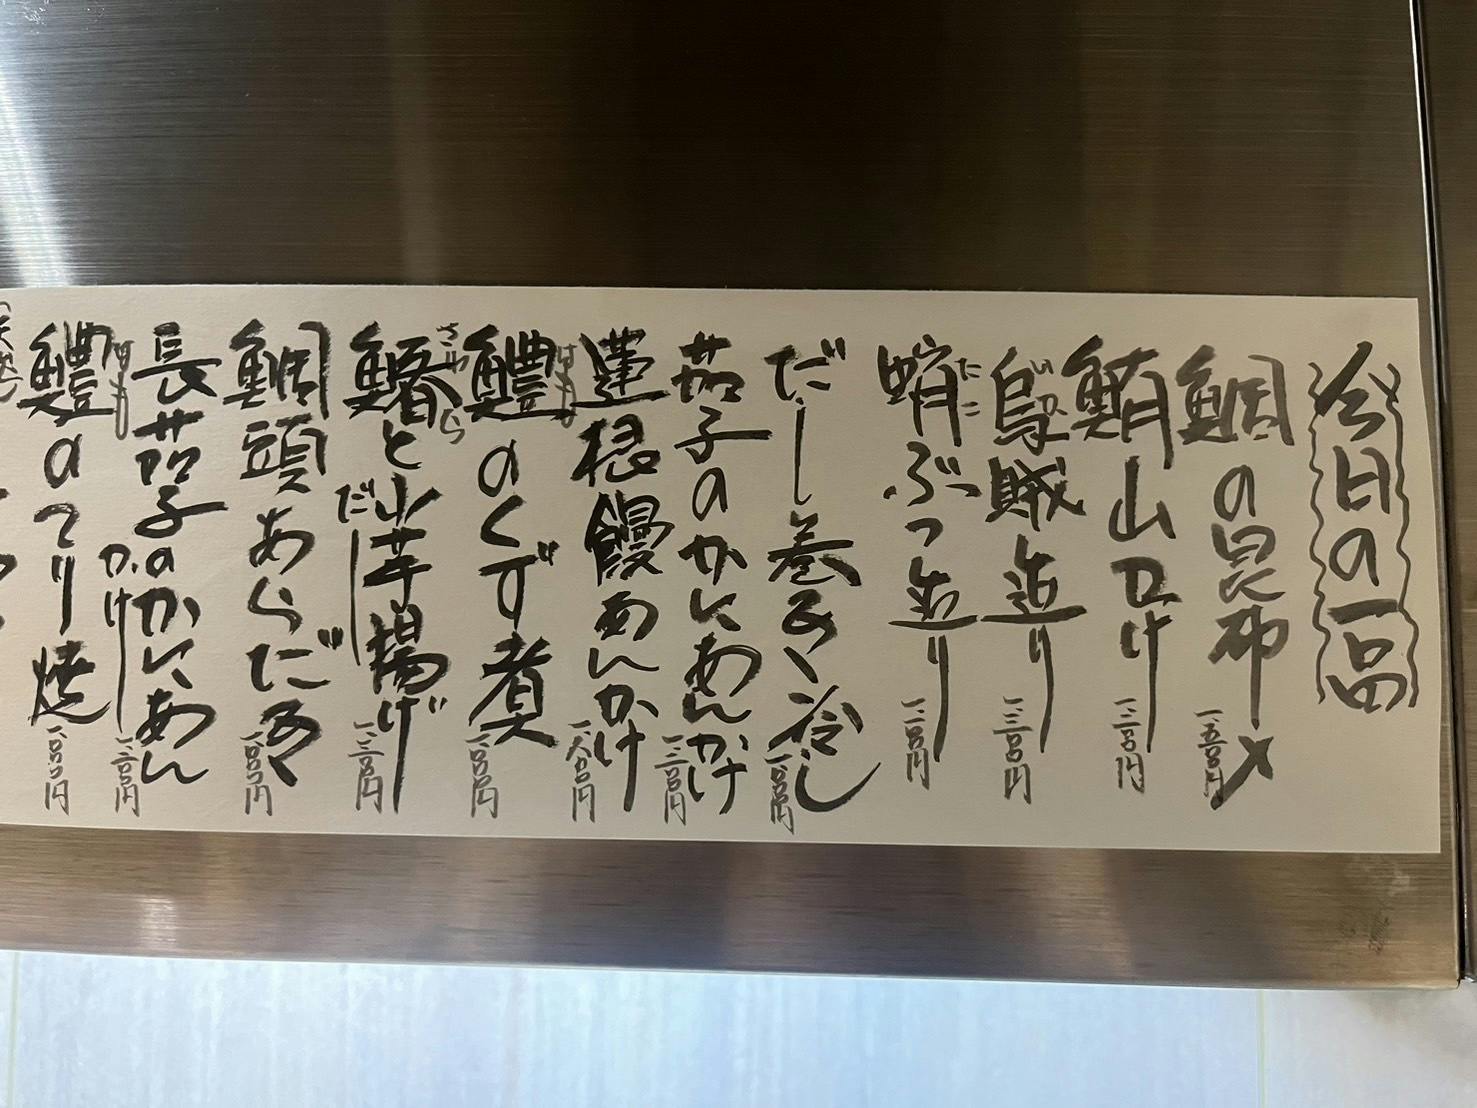 今日の一品
鯛の昆布〆
一、五〇〇円
鮪山かけ
一、三〇〇円
烏賊造り
いか
一、三〇〇円
蛸ぶつ造り
たこ
一、二〇〇円
だし巻き冷し
一、〇〇〇円
茄子のかにあんかけ
一、三〇〇円
蓮根饅あんかけ
一、八〇〇円
鱧のくず煮
はも
一、〇〇〇円
鰆と山芋揚げだし
さわら
一、三〇〇円
鯛頭あらだき
一、〇〇〇円
長茄子のかにあんかけ
一、三〇〇円
鱧のてり焼
はも
一、〇〇〇円